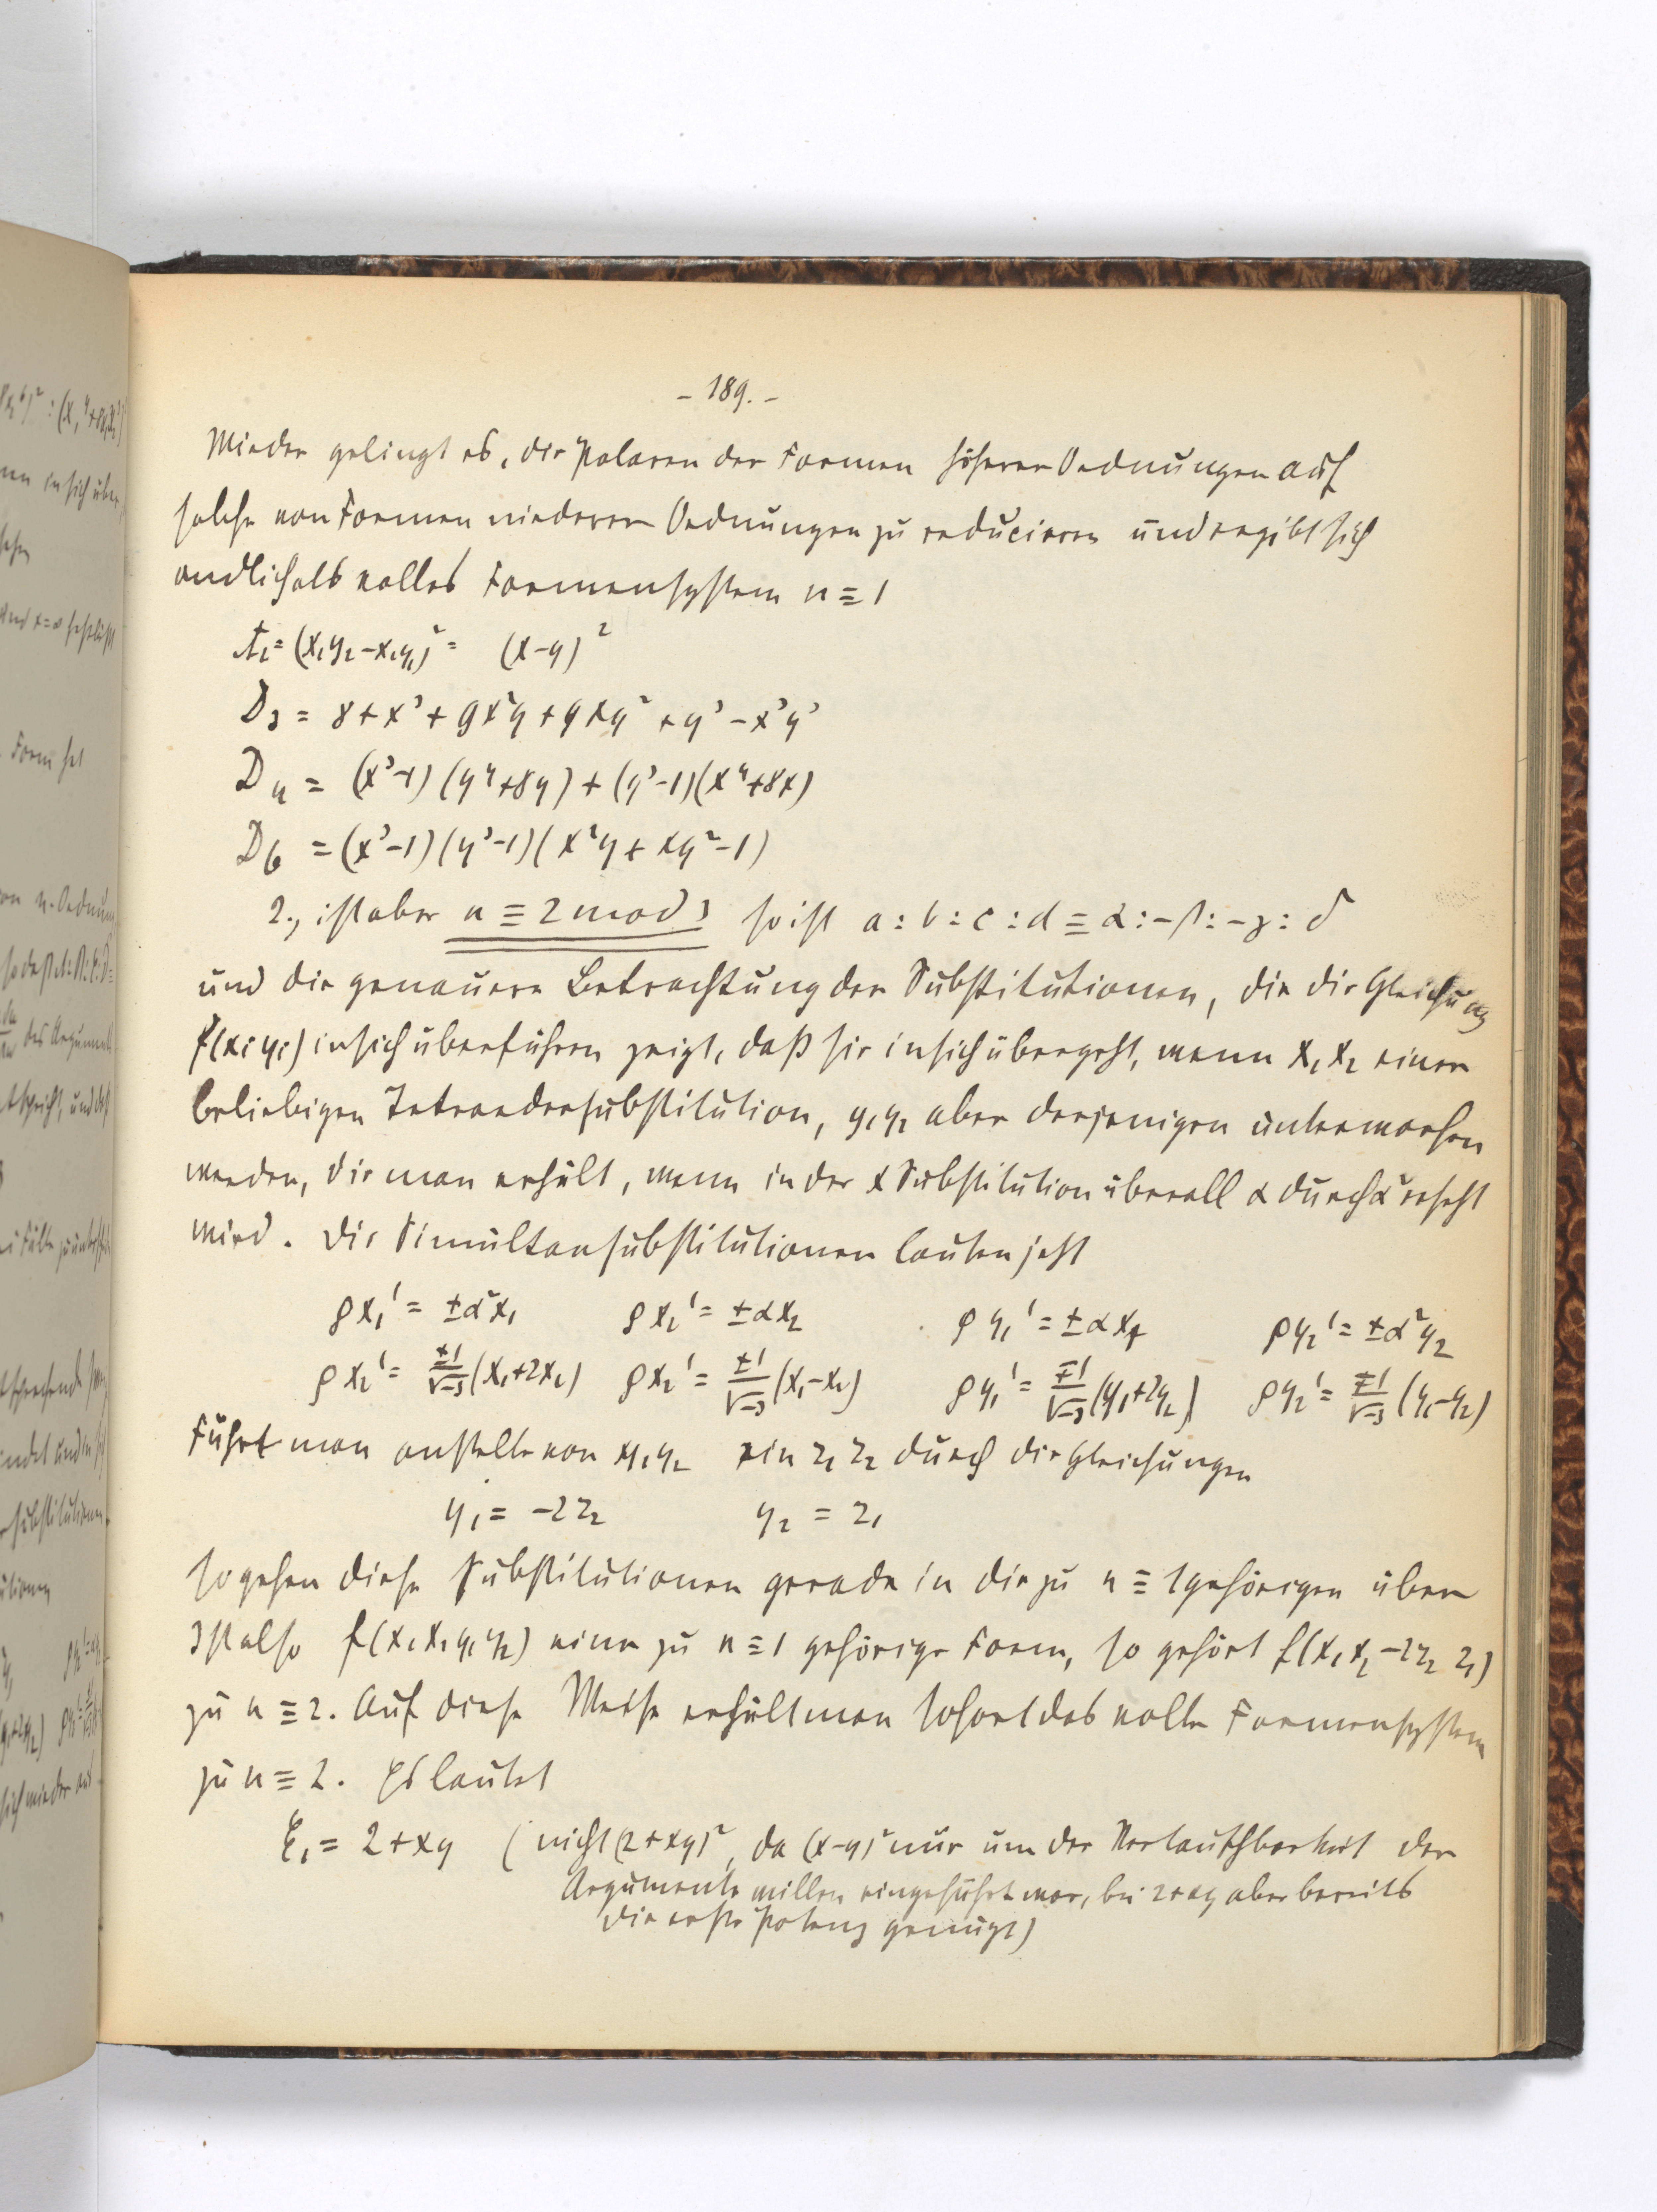 - 189. -
Wieder gelingt es, die Polaren der Formen höherer Ordnungen auf
solche von Formen niederer Ordnungen zu reducieren und ergibt sich
endlich als volles Formensystem n ≡ 1
A₂ = (x₁y₂-x₂y₁)² = (x-y)²
D₃ = 8+x³+9x²y+9xy²+y³-x³y³
D₄ = (x³-1)(y⁴+8y)+(y³-1)(x⁴+8x)
D₆ = (x³-1)(y³-1)(x²y+xy²-1)
2., ist aber n ≡ 2 mod 3 so ist a:b:c:d ≡ α:-β:-γ:δ
und die genauere Betrachtung der Substitutionen, die die Gleichung
f(xᵢyᵢ) in sich überführen zeigt, daß sie in sich übergeht, wenn x₁x₂ einer
beliebigen Tetraedersubstitution, y₁y₂ aber derjenigen unterworfen
werden, die man erhält, wenn in der x Substitution überall α durch α² ersetzt
wird. Die Simultansubstitutionen lauten jetzt
ρx₁' = ±α²x₁ ρx₂' = ±αx₂ ρy₁' = ±αx₁ ρy₂' = ±α²y₂
ρx₂' = ±1/√-3 (x₁+2x₂) ρx₂' = ±1/√-3 (x₁-x₂) ρy₁' = ∓1/√-3 (y₁+2y₂) ρy₂' = ∓1/√-3 (y₁-y₂)
Führt man anstelle von y₁y₂ ein z₁ z₂ durch die Gleichungen
y₁ = -2z₂ y₂ = z₁
so gehen diese Substitutionen gerade in die zu n ≡ 1 gehörigen über
Ist also f(x₁x₂y₁y₂) eine zu n ≡ 1 gehörige Form, so gehört f(x₁x₂ -2z₂ z₁)
zu n ≡ 2. Auf diese Weise erhält man sofort das volle Formensystem
zu n ≡ 2. Es lautet
E₁ = 2+xy (nicht (2+xy)², da (x-y)² nur um der Vertauschbarkeit der
Argumente willen eingeführt war, bei 2+xy aber bereits
die erste Potenz genügt)